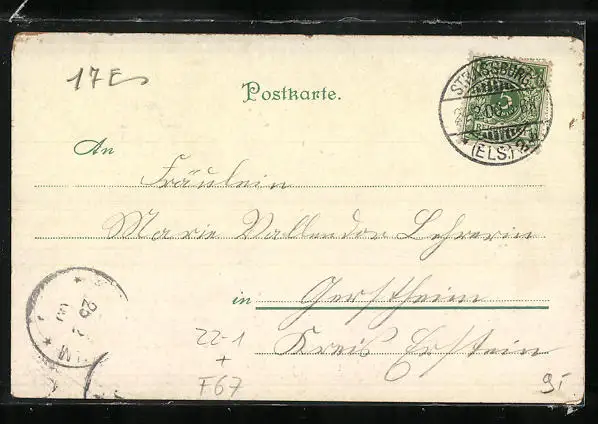 17E
Postkarte.
STRASSBURG
5
(ELS.)
An
Fräulein
Marie Vallendor Lehrerin
in Gerstheim
25
Kreis Erstein
22-1
+
F67